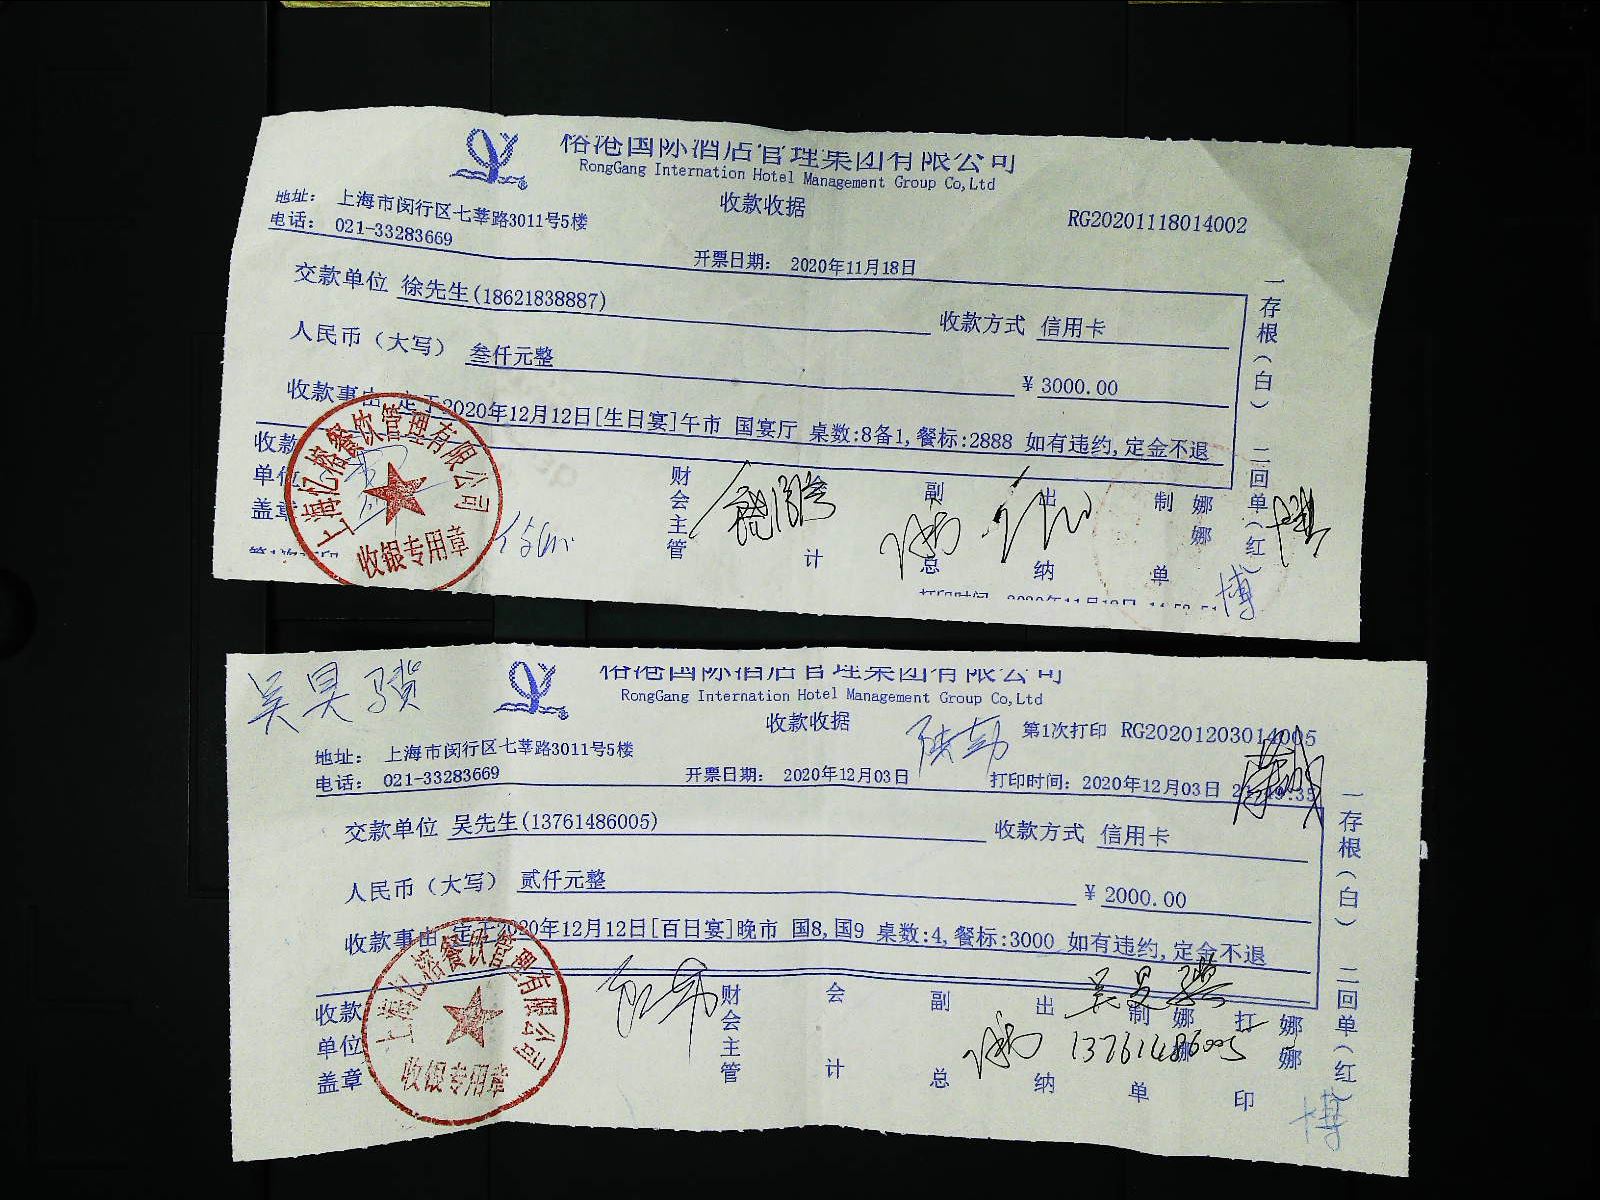 榕港国际酒店管理集团有限公司
RongGang Internation Hotel Management Group Co,Ltd
收款收据
地址： 上海市闵行区七莘路3011号5楼
RG20201118014002
电话： 021-33283669
开票日期： 2020年11月18日
交款单位 徐先生(18621838887)
收款方式 信用卡
人民币（大写） 叁仟元整
¥ 3000.00
收款事由 定于2020年12月12日[生日宴]午市 国宴厅 桌数:8备1,餐标:2888 如有违约,定金不退
收款单位盖章
财会主管
会计
副总
出纳
制单
娜娜
博
一存根(白) 二回单(红)
上海亿榕餐饮管理有限公司
收银专用章
第1次打印
吴昊骥
榕港国际酒店管理集团有限公司
RongGang Internation Hotel Management Group Co,Ltd
收款收据
第1次打印 RG20201203014005
地址： 上海市闵行区七莘路3011号5楼
电话： 021-33283669
开票日期： 2020年12月03日
打印时间：2020年12月03日
交款单位 吴先生(13761486005)
收款方式 信用卡
人民币（大写） 贰仟元整
¥ 2000.00
收款事由 定于2020年12月12日[百日宴]晚市 国8,国9 桌数:4,餐标:3000 如有违约,定金不退
收款单位盖章
财会主管
会计
副总
出纳
制单
娜娜
打印
娜娜
吴昊骥
13761486005
博
一存根(白) 二回单(红)
上海亿榕餐饮管理有限公司
收银专用章